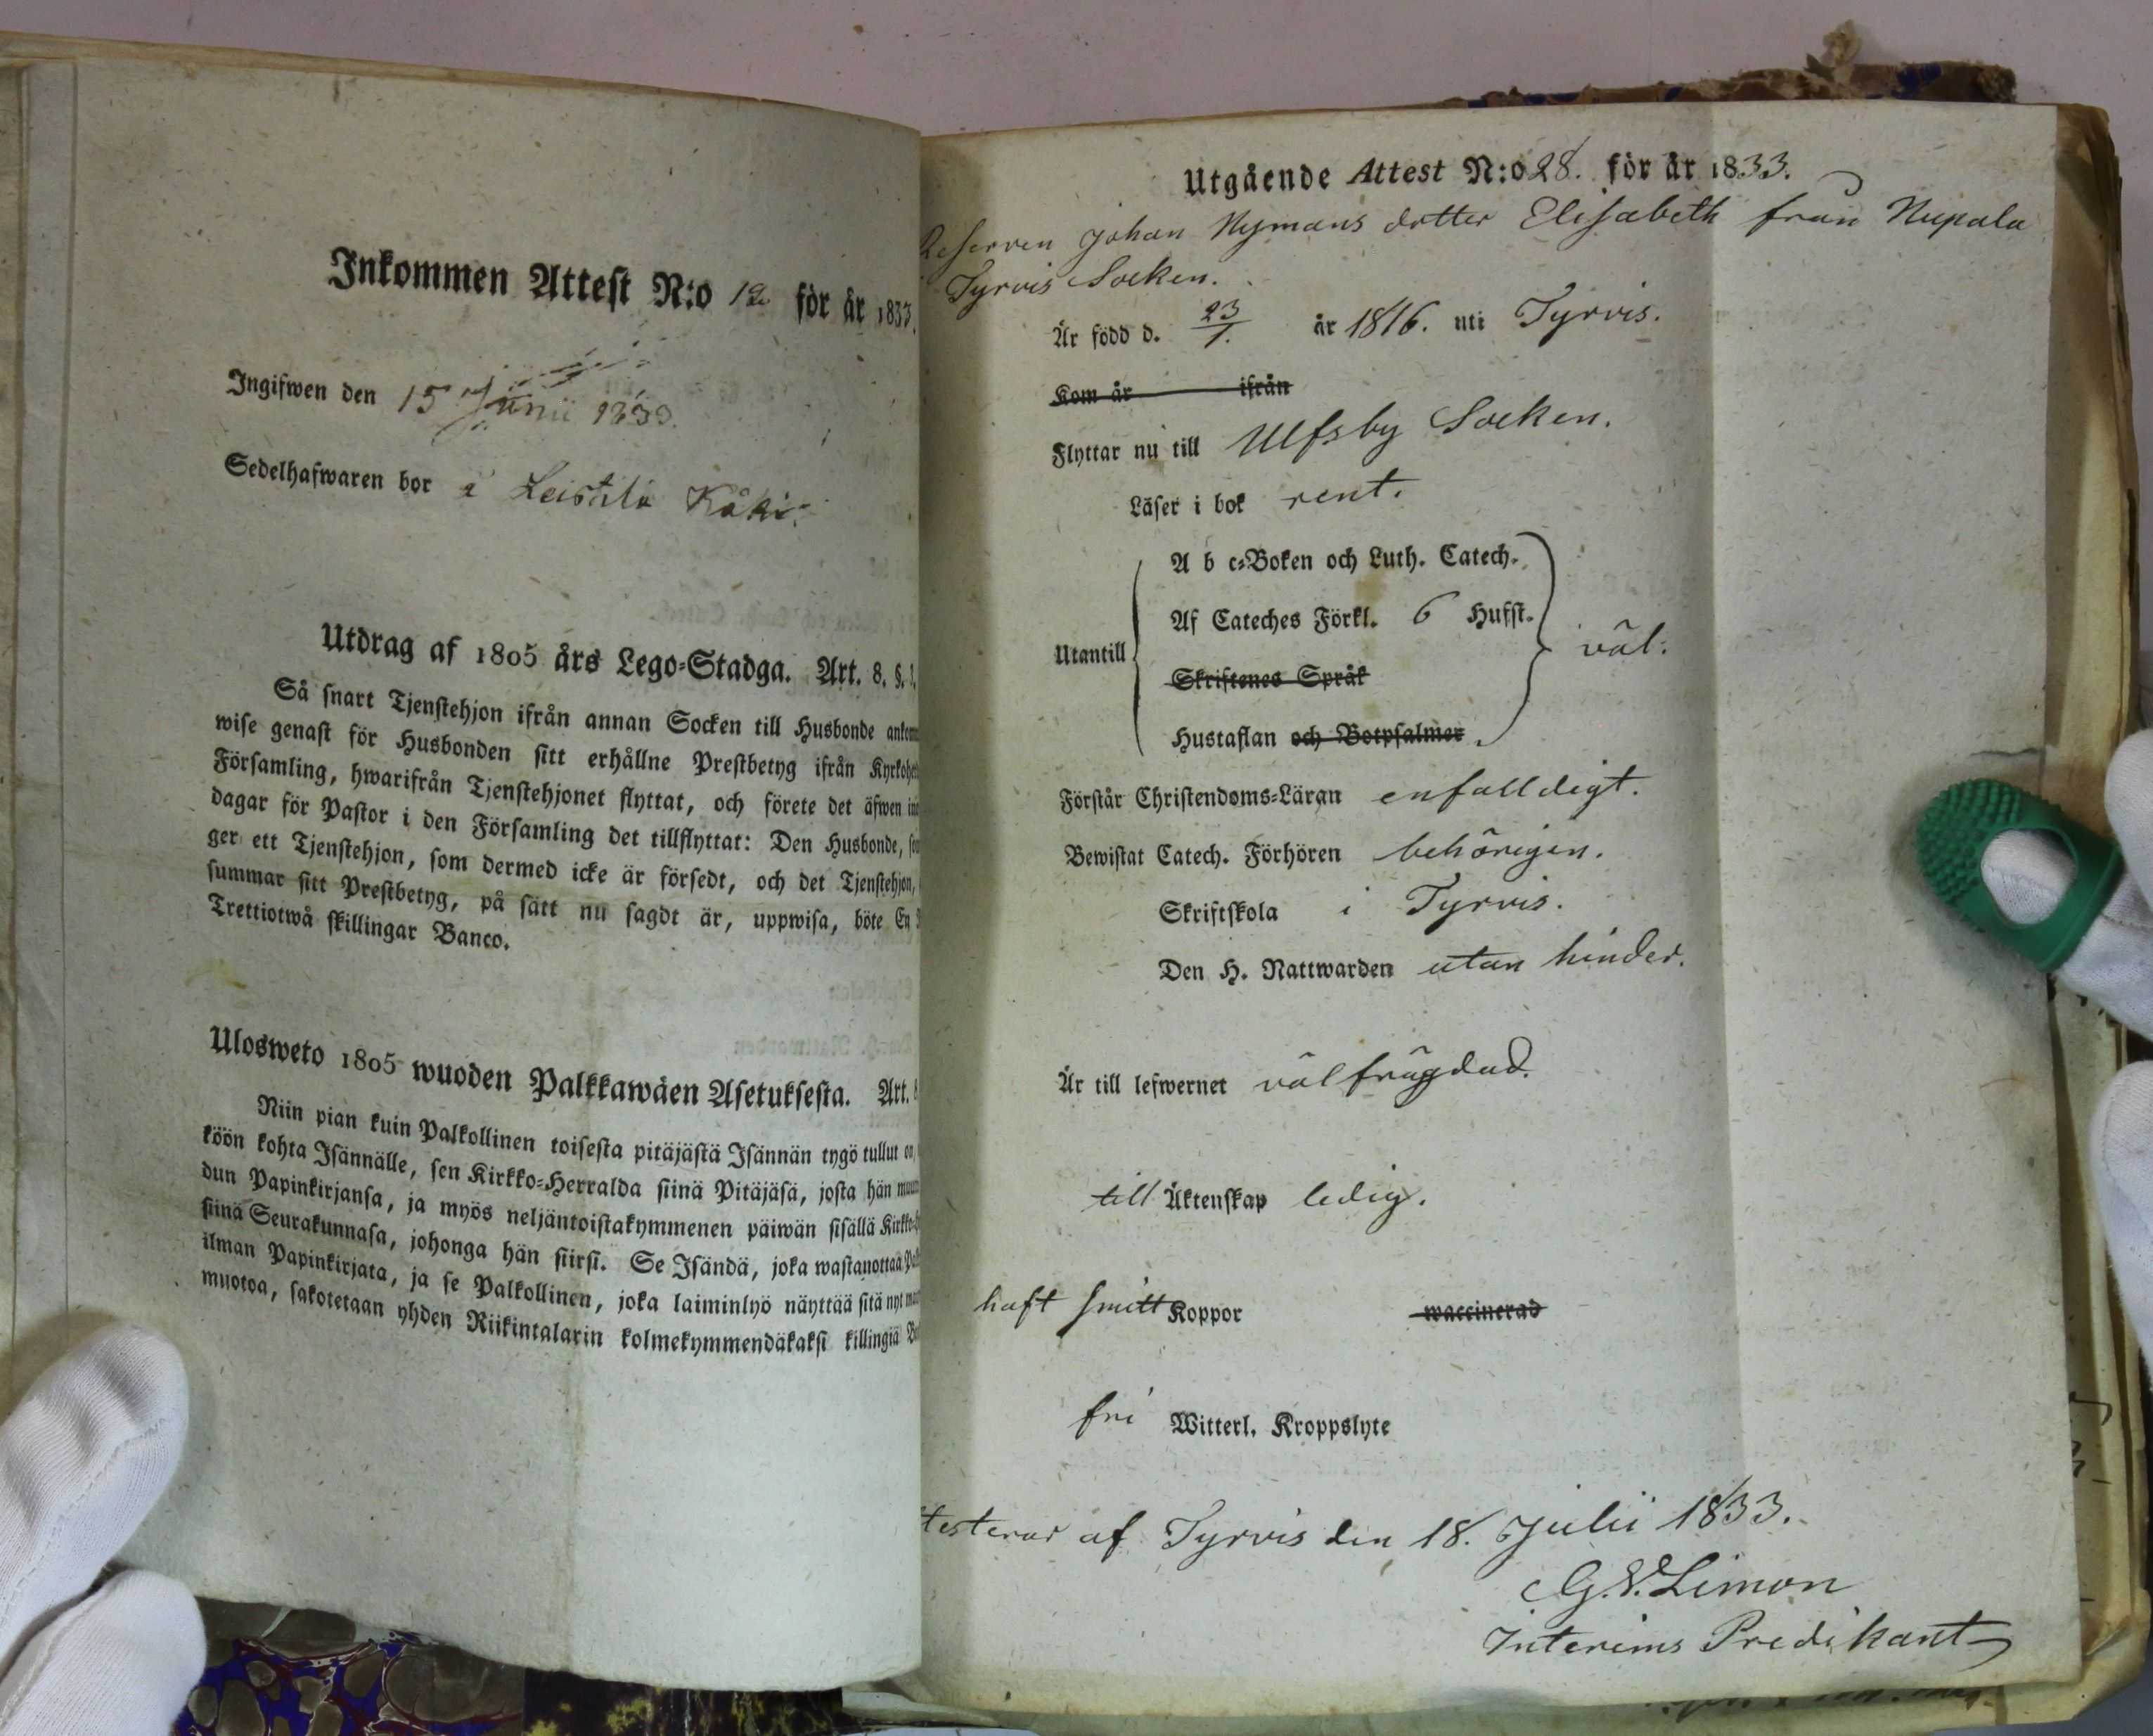 Inkommen Attest N:o 12 för år 1833.
Ingifwen den 15 Junii 1833.
Sedelhafwaren bor å Leistilä Käki.
Utdrag af 1805 års Lego-Stadga. Art. 8. §.
Så snart Tjenstehjon ifrån annan Socken till Husbonde
wise genast för Husbonden sitt erhållne Prestbetyg ifrån
Församling, hwarifrån Tjenstehjonet flyttat, och förete det äfwen
dagar för Pastor i den Församling det tillflyttat: Den Husbonde,
ger ett Tjenstehjon, som dermed icke är försedt, och det Tjenstehjon,
summar sitt Prestbetyg, på sätt nu sagdt är, uppwisa, böte En
Trettiotwå skillingar Banco.
Ulosweto 1805 wuoden Palkkawäen Asetuksesta. Art.
Niin pian kuin Palkollinen toisesta pitäjästä Isännän tygö tullut on,
köön kohta Isännälle, sen Kirkko-Herralda siinä Pitäjäsä, josta hän
dun Papinkirjansa, ja myös neljäntoistakymmenen päiwän sisällä
siinä Seurakunnasa, johonga hän siirsi. Se Isändä, joka wastanottaa
ilman Papinkirjata, ja se Palkollinen, joka laiminlyö näyttää sitä nyt
muotoa, sakotetaan yhden Riikintalarin kolmekymmendäkaksi killingiä
Utgående Attest N:o 28. för år 1833.
Reserven Johan Nymans dotter Elisabeth från Nupala
Tyrvis Socken.
Är född d. 23/1. år 1816. uti Tyrvis.
Kom år ifrån
Flyttar nu till Ulfsby Socken.
Läser i bok rent.
A b c-Boken och Luth. Catech.
Af Cateches Förkl. 6 Hufst.
Utantill väl.
Skriftenes Språk
Hustaflan och Botpsalmer
Förstår Christendoms-Läran enfalldigt.
Bewistat Catech. Förhören behörigen.
Skriftskola i Tyrvis.
Den H. Nattwarden utan hinder.
Är till lefwernet välfrägdad.
till Äktenskap ledig.
haft smitt Koppor waccinerad
fri Witterl. Kroppslyte
testerar af Tyrvis den 18. Julii 1833.
G. V. Limon
Interims Predikant